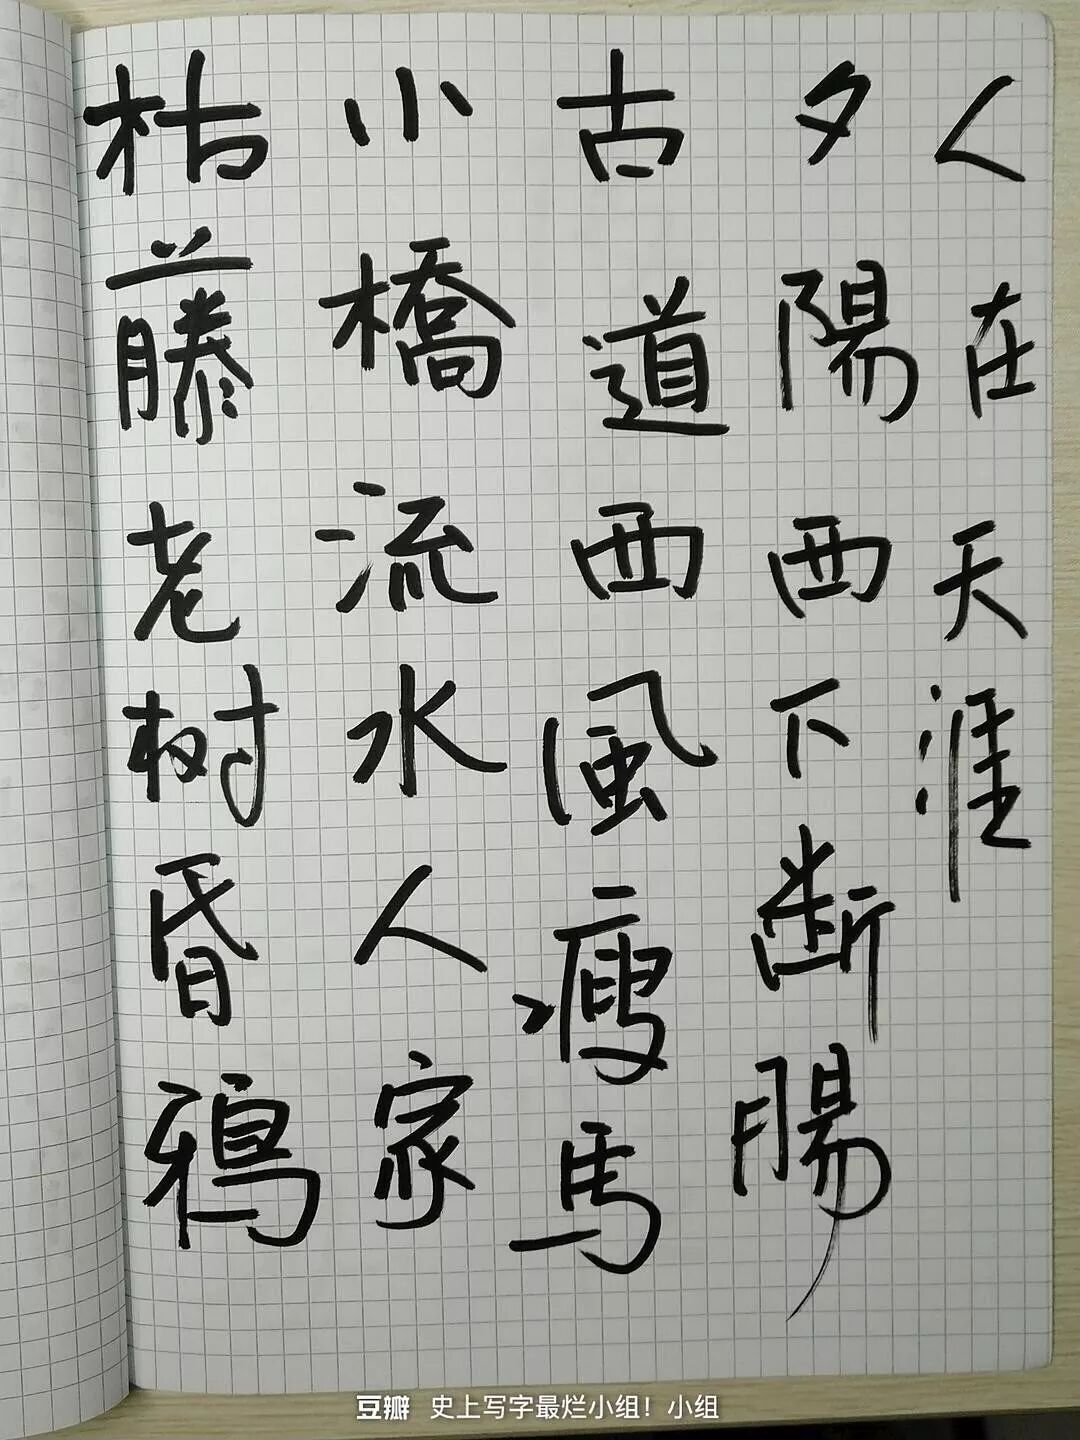 枯藤老树昏鴉
小橋流水人家
古道西風瘦馬
夕陽西下断腸
人在天涯
豆瓣 史上写字最烂小组！小组